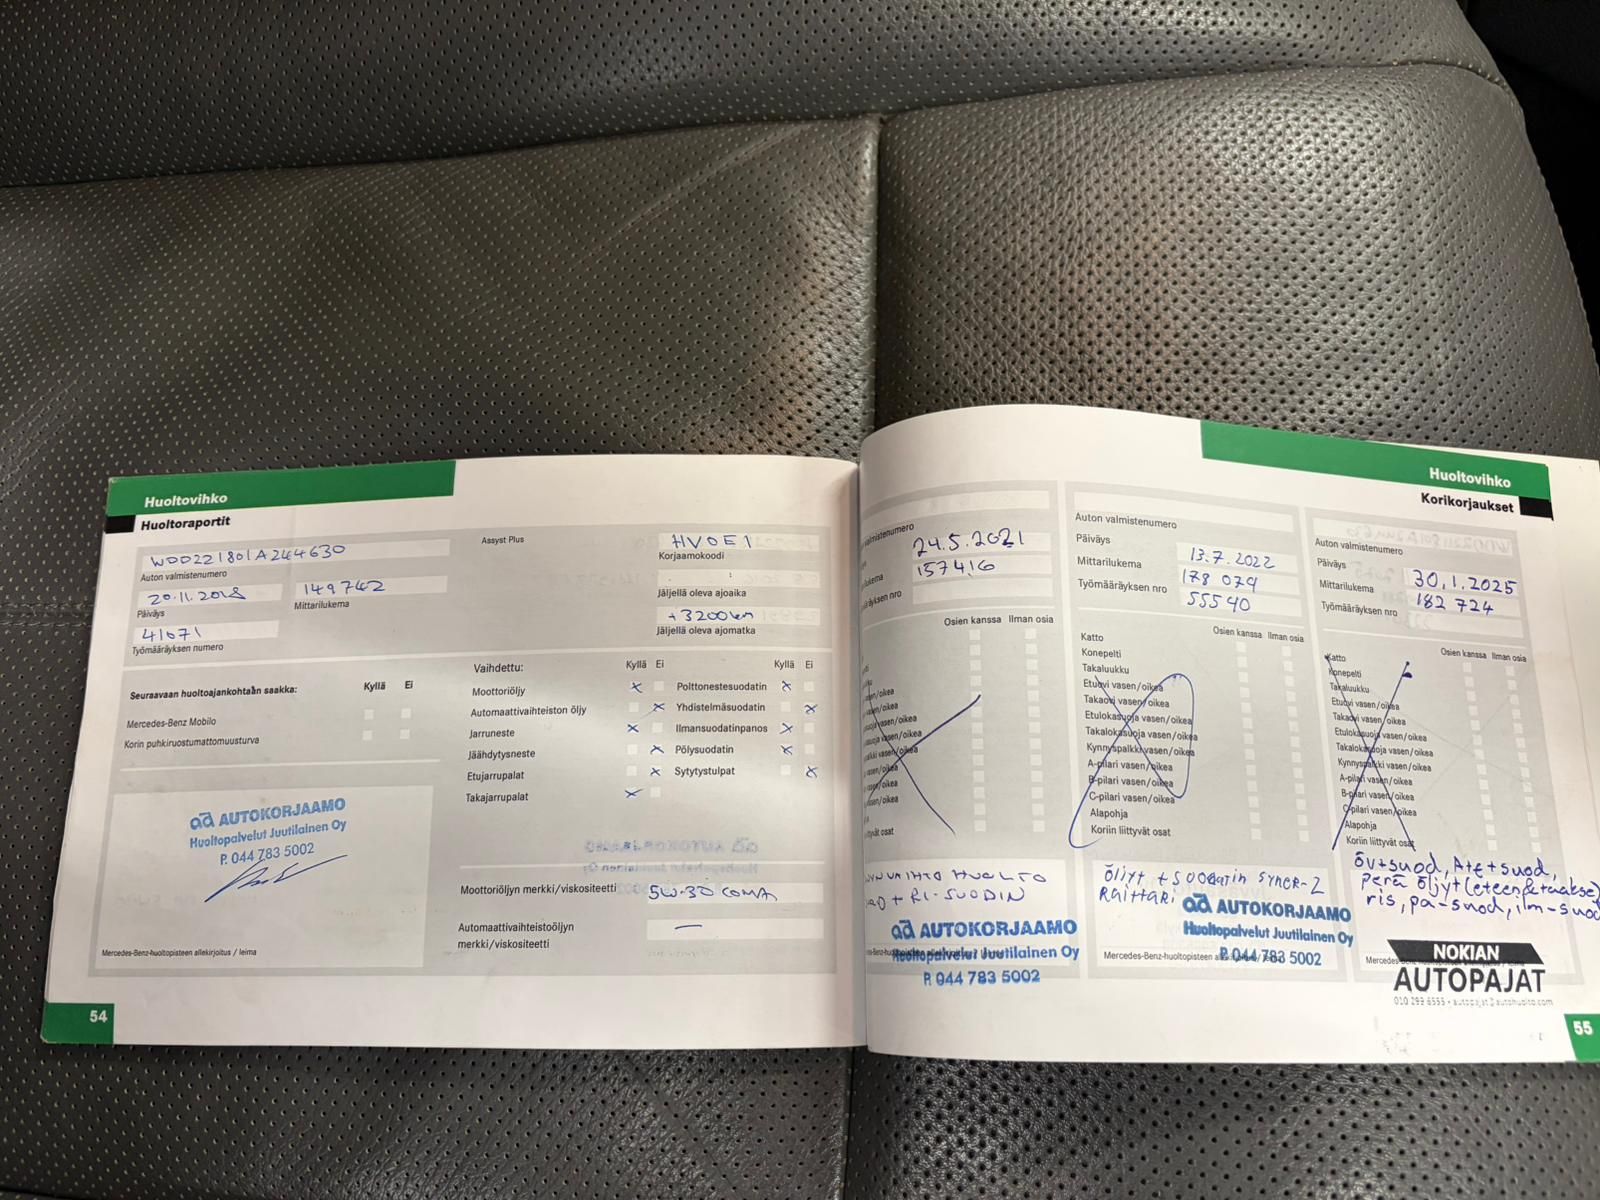 Huoltovihko
Huoltoraportit
WDD221801A244630
Auton valmistenumero
20.11.2018
149742
Päiväys
Mittarilukema
41071
Työmääräyksen numero
Assyst Plus
HVOE1
Korjaamokoodi
Jäljellä oleva ajoaika
+3200km
Jäljellä oleva ajomatka
Seuraavaan huoltoajankohtaan saakka:
Kyllä Ei
Mercedes-Benz Mobilo
Korin puhkiruostumattomuusturva
Vaihdettu:
Kyllä Ei
Kyllä Ei
Moottoriöljy
Polttonestesuodatin
Automaattivaihteiston öljy
Yhdistelmäsuodatin
Jarruneste
Ilmansuodatinpanos
Jäähdytysneste
Pölysuodatin
Etujarrupalat
Sytytystulpat
Takajarrupalat
ad AUTOKORJAAMO
Huoltopalvelut Juutilainen Oy
P. 044 783 5002
Mercedes-Benz-huoltopisteen allekirjoitus / leima
Moottoriöljyn merkki/viskositeetti
5W-30 COMA
Automaattivaihteistoöljyn
merkki/viskositeetti
—
54
Huoltovihko
Korikorjaukset
valmistenumero
24.5.2021
157416
Osien kanssa Ilman osia
HUOLTO
ad AUTOKORJAAMO
Huoltopalvelut Juutilainen Oy
P. 044 783 5002
Auton valmistenumero
Päiväys
13.7.2022
Mittarilukema
178 079
Työmääräyksen nro
55540
Osien kanssa Ilman osia
Katto
Konepelti
Takaluukku
Etuovi vasen/oikea
Takaovi vasen/oikea
Etulokasuoja vasen/oikea
Takalokasuoja vasen/oikea
Kynnyspalkki vasen/oikea
A-pilari vasen/oikea
B-pilari vasen/oikea
C-pilari vasen/oikea
Alapohja
Koriin liittyvät osat
öljyt + suodatin
Raittari
ad AUTOKORJAAMO
Huoltopalvelut Juutilainen Oy
P. 044 783 5002
Mercedes-Benz-huoltopisteen
Auton valmistenumero
Päiväys
30.1.2025
Mittarilukema
182 724
Työmääräyksen nro
Osien kanssa Ilman osia
Katto
Konepelti
Takaluukku
Etuovi vasen/oikea
Takaovi vasen/oikea
Etulokasuoja vasen/oikea
Takalokasuoja vasen/oikea
Kynnyspalkki vasen/oikea
A-pilari vasen/oikea
B-pilari vasen/oikea
C-pilari vasen/oikea
Alapohja
Koriin liittyvät osat
öv+suod, ATF+suod,
perä öljyt (eteen&taakse)
ris, pa-suod, ilm-suod
NOKIAN
AUTOPAJAT
010 299 6555 • autopajat@autohuolto.com
55